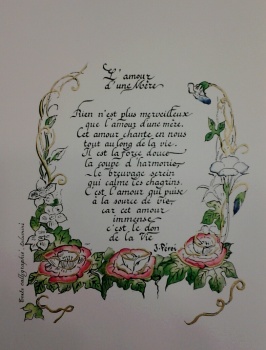 L'amour
d'une Mère
Rien n'est plus merveilleux
que l'amour d'une mère.
Cet amour chante en nous
tout au long de la vie.
Il est la force douce
la coupe d'harmonie
le breuvage serein
qui calme les chagrins.
C'est l'amour qui puise
à la source de vie
car cet amour
immense
c'est le don
de la vie